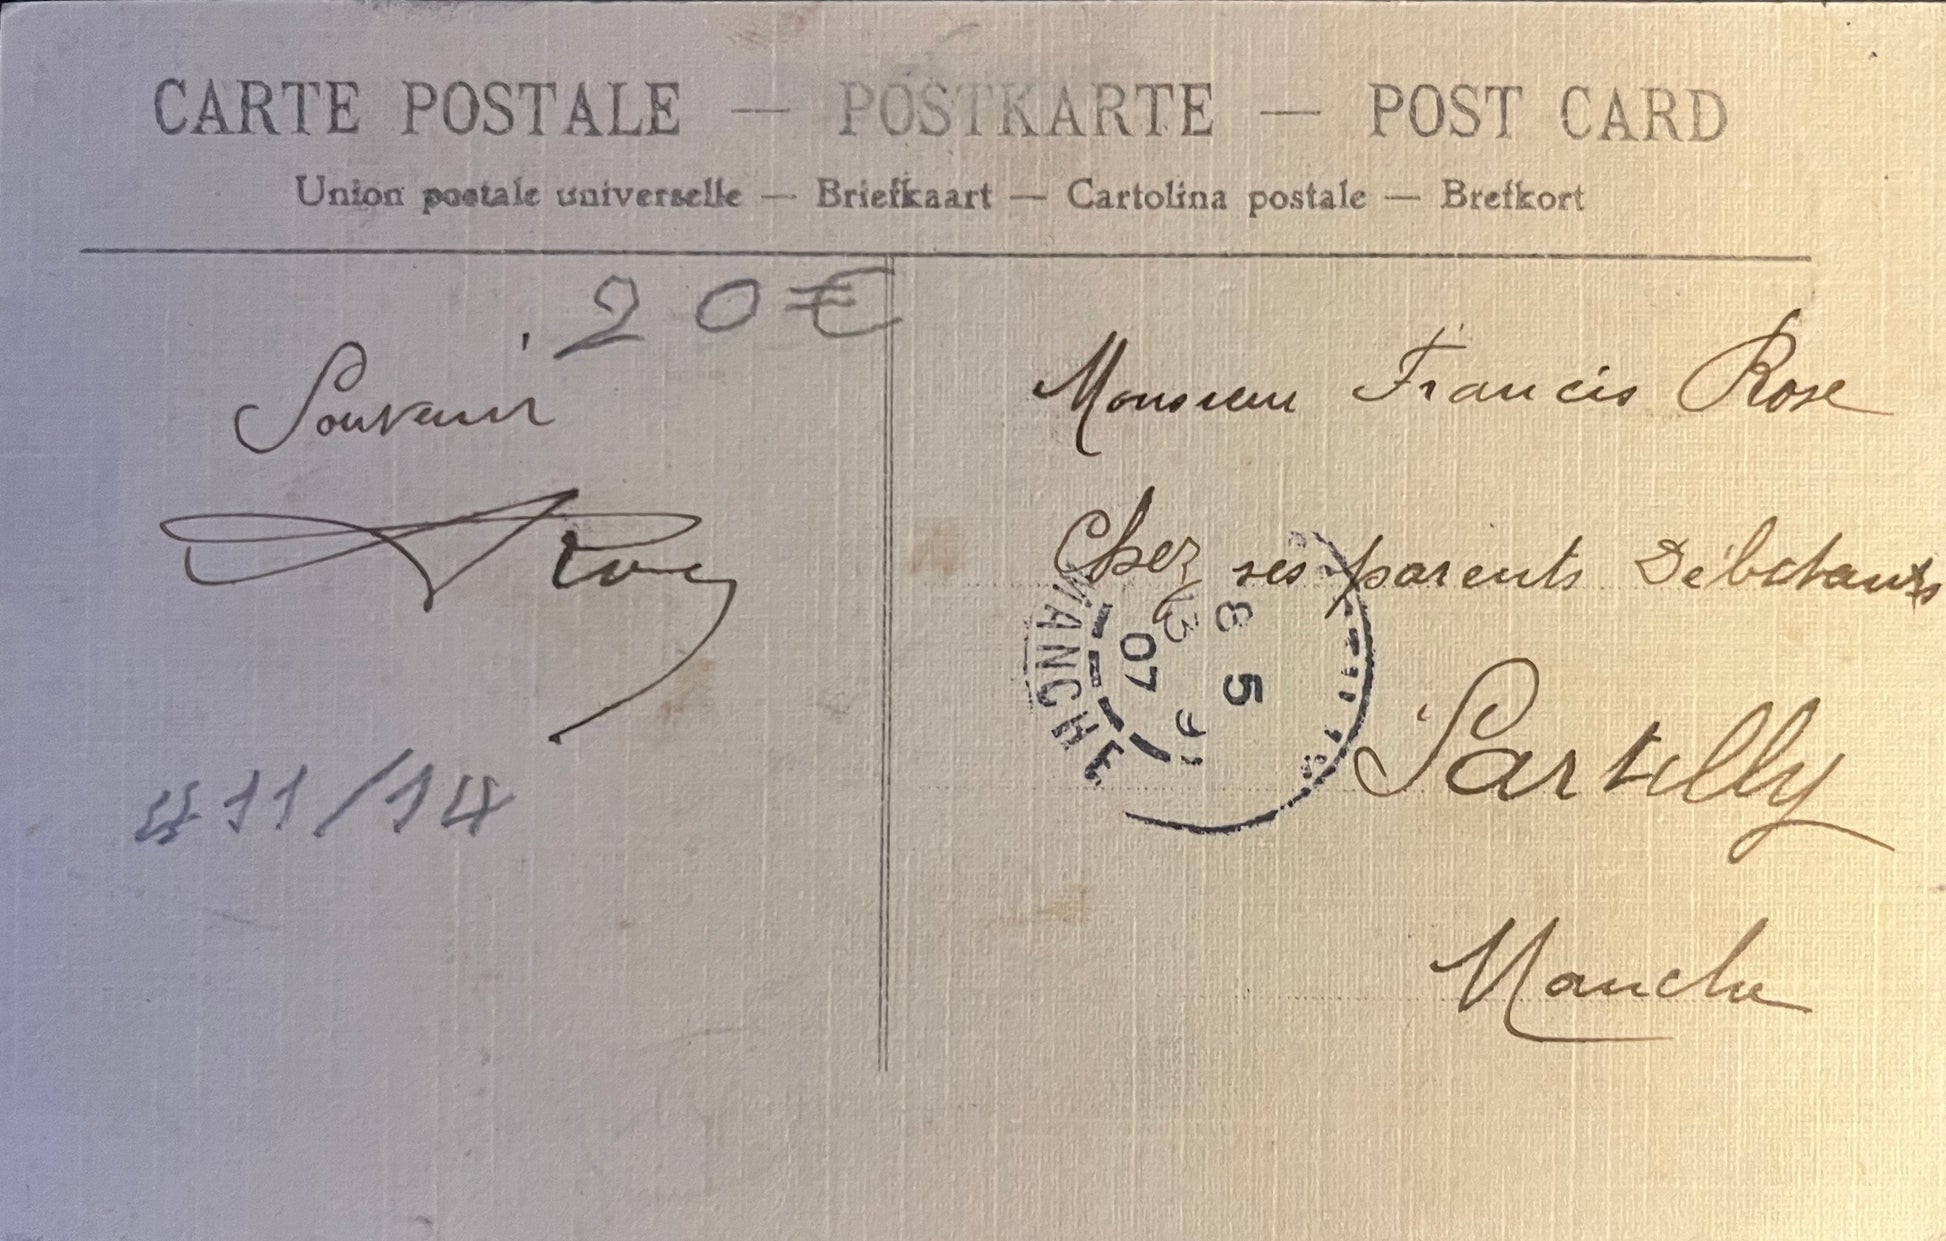 CARTE POSTALE — POSTKARTE — POST CARD
Union postale universelle — Briefkaart — Cartolina postale — Brefkort
20€
Souvenir
411/14
Monsieur Francis Rose
Chez ses parents Débitants
Sartilly
Manche
MANCHE
8 5
07